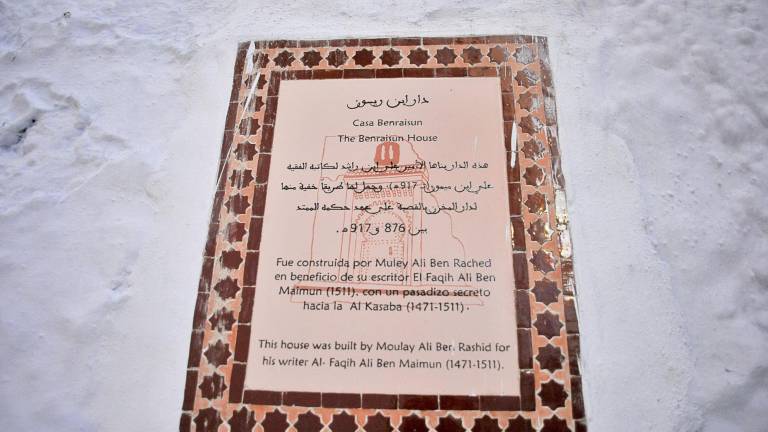 دار ابن ريسون
Casa Benraisun
The Benraisun House
هذه الدار بناها الأمير علي ابن راشد لكاتبه الفقيه
علي ابن ميمون (ت 917ه)، وجعل لها طريقا خفية منها
لدار المخزن بالقصبة على عهد حكمه الممتد
بين 876 و917ه.
Fue construida por Muley Ali Ben Rached
en beneficio de su escritor El Faqih Ali Ben
Maimun (1511), con un pasadizo secreto
hacia la Al Kasaba (1471-1511).
This house was built by Moulay Ali Ben Rashid for
his writer Al- Faqih Ali Ben Maimun (1471-1511).